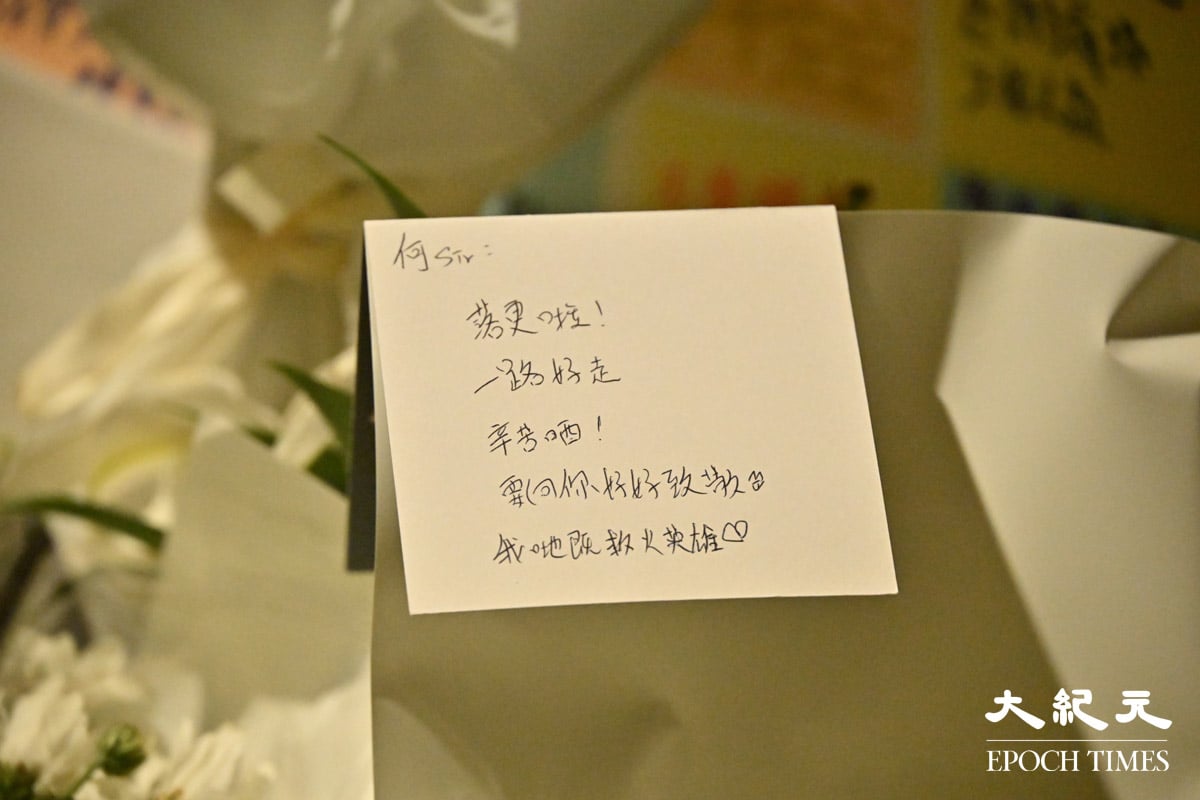 何Sir:
落更啦!
一路好走
辛苦晒!
要同你好好致敬
我哋既救火英雄♡
大紀元
EPOCH TIMES